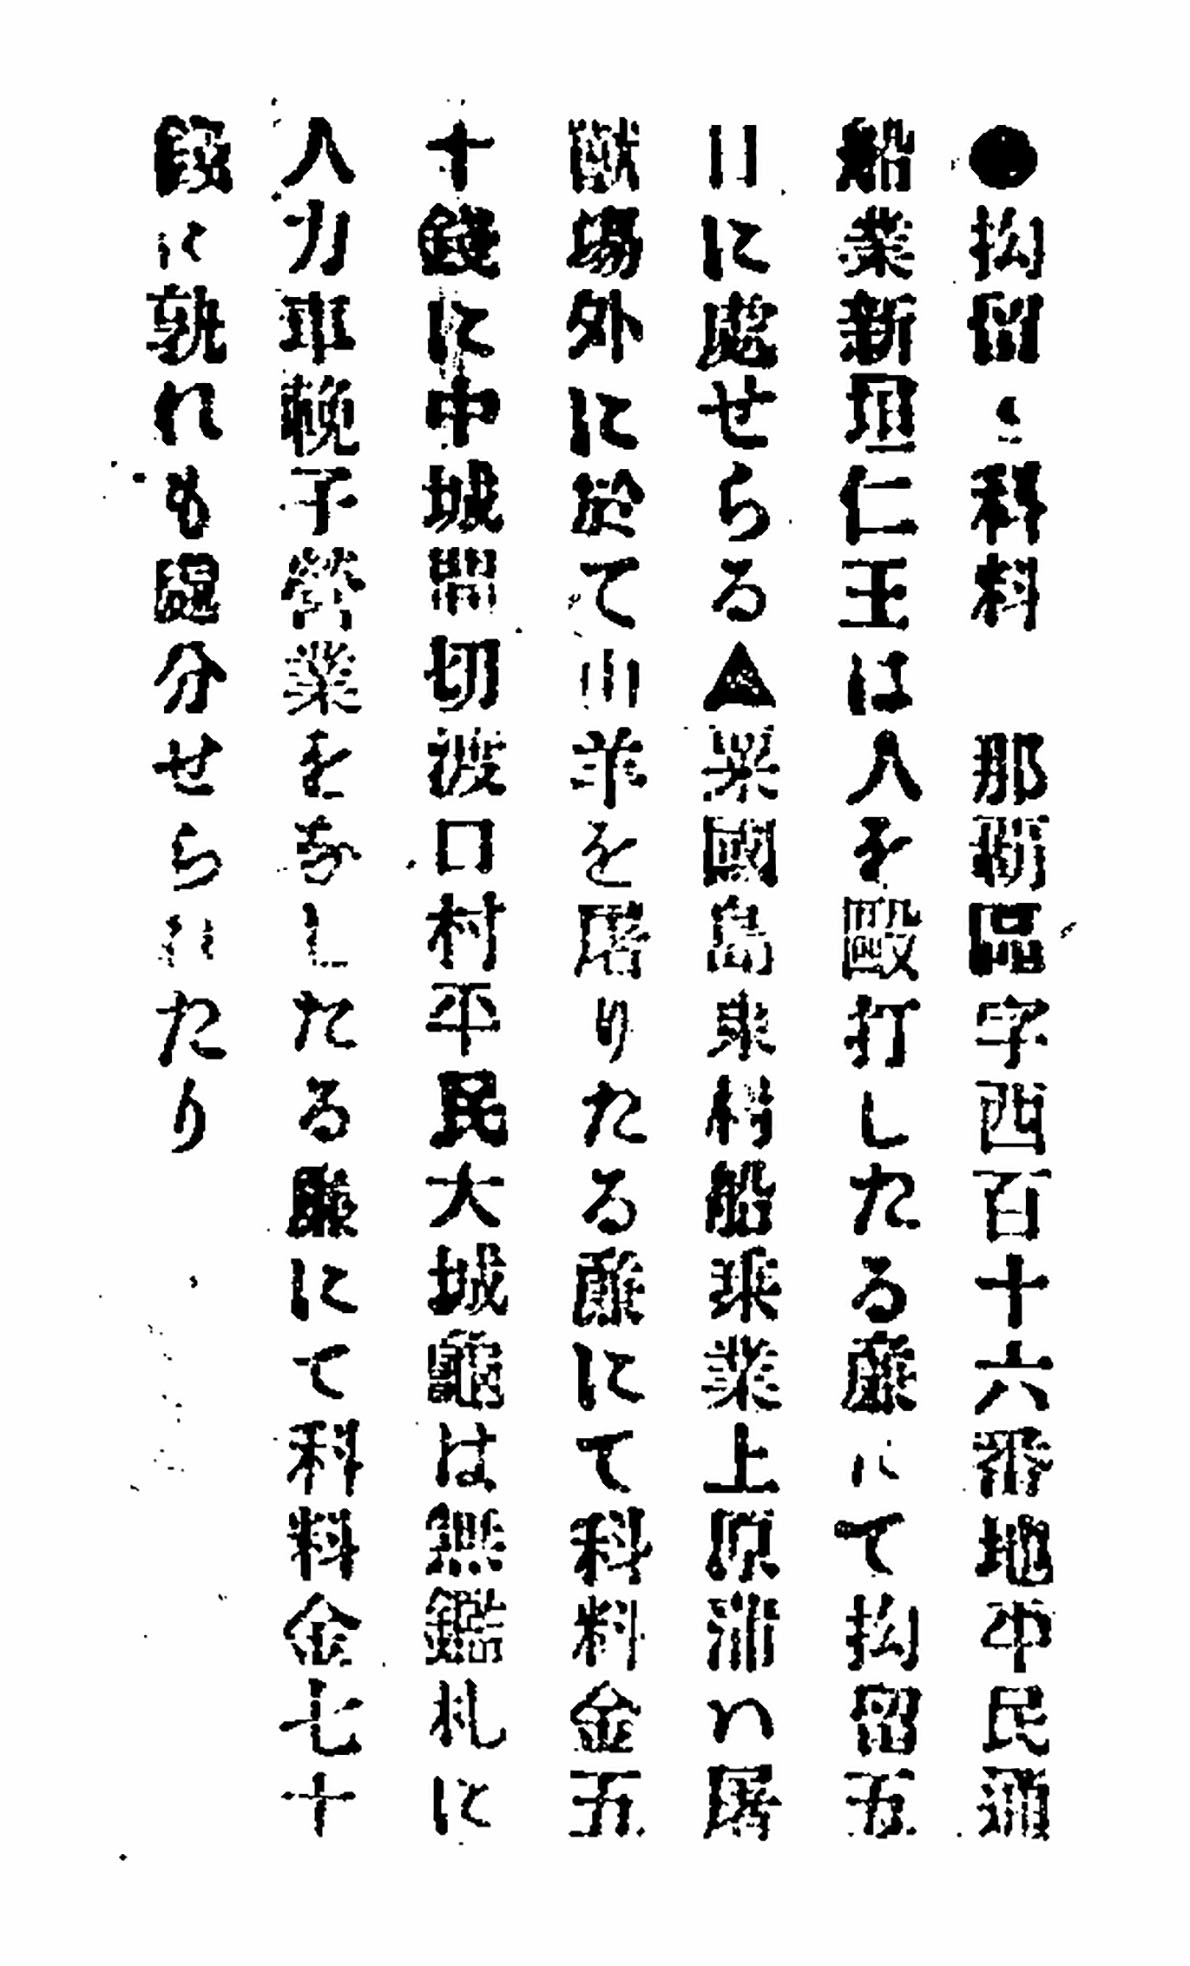 ●拘留と科料　那覇區字西百十六番地平民通
船業新垣仁王は人を毆打したる廉にて拘留五
日に處せらる▲粟國島東村船乘業上原蒲ハ屠
獸場外に於て山羊を屠りたる廉にて科料金五
十錢に中城間切渡口村平民大城龜は無鑑札に
人力車輓子營業をなしたる廉にて科料金七十
錢に孰れも處分せられたり